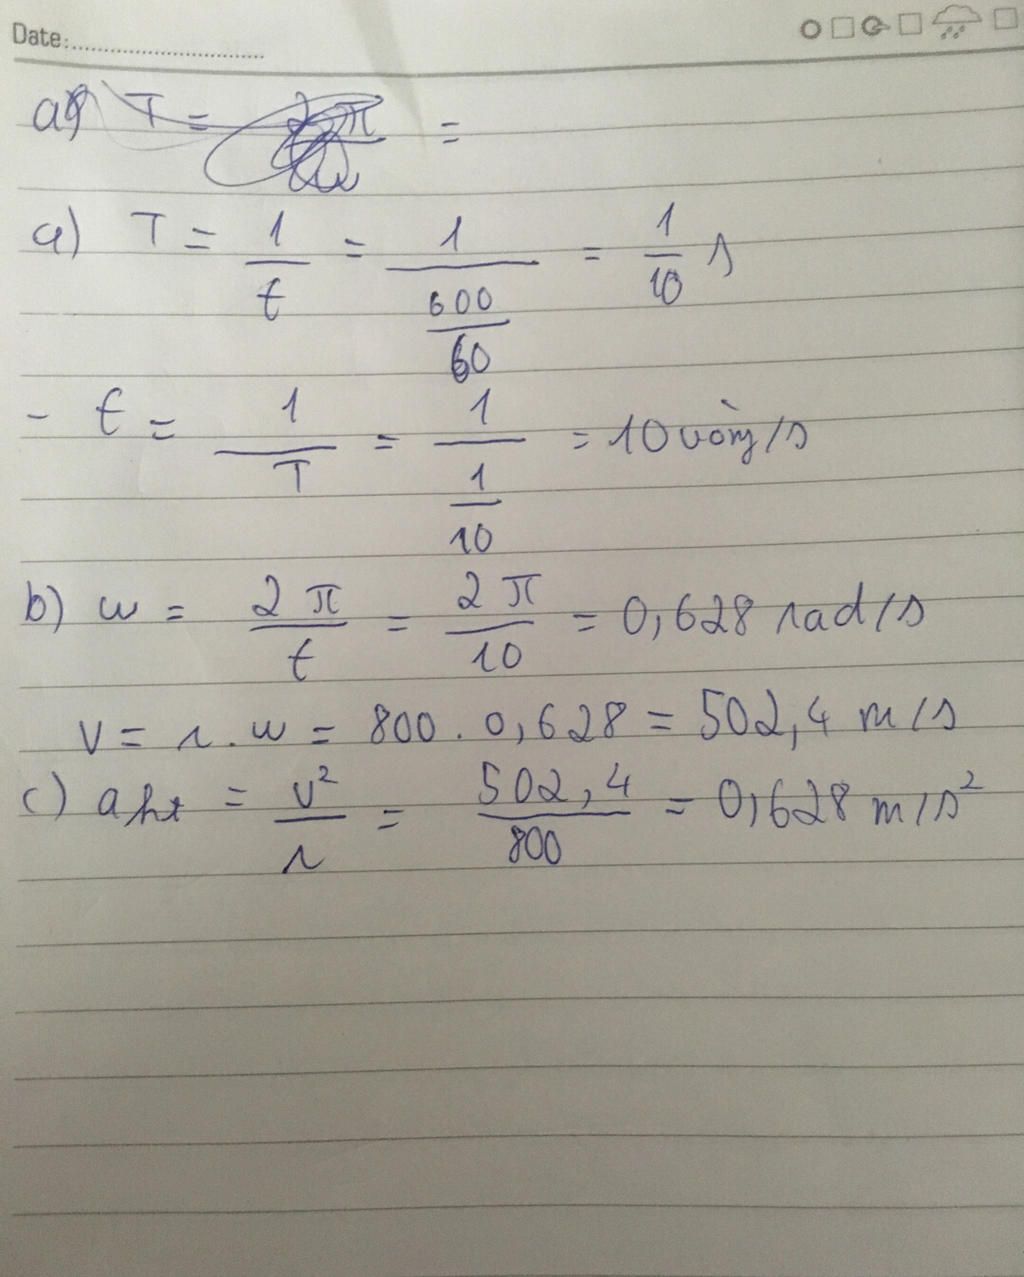 Date:
a) T = 2π =
a) T = 1/t = 1/(600/60) = 1/10 s
- t = 1/T = 1/(1/10) = 10 vòng/s
b) w = 2π/t = 2π/10 = 0,628 rad/s
v = r.w = 800.0,628 = 502,4 m/s
c) aht = v²/r = 502,4/800 = 0,628 m/s²